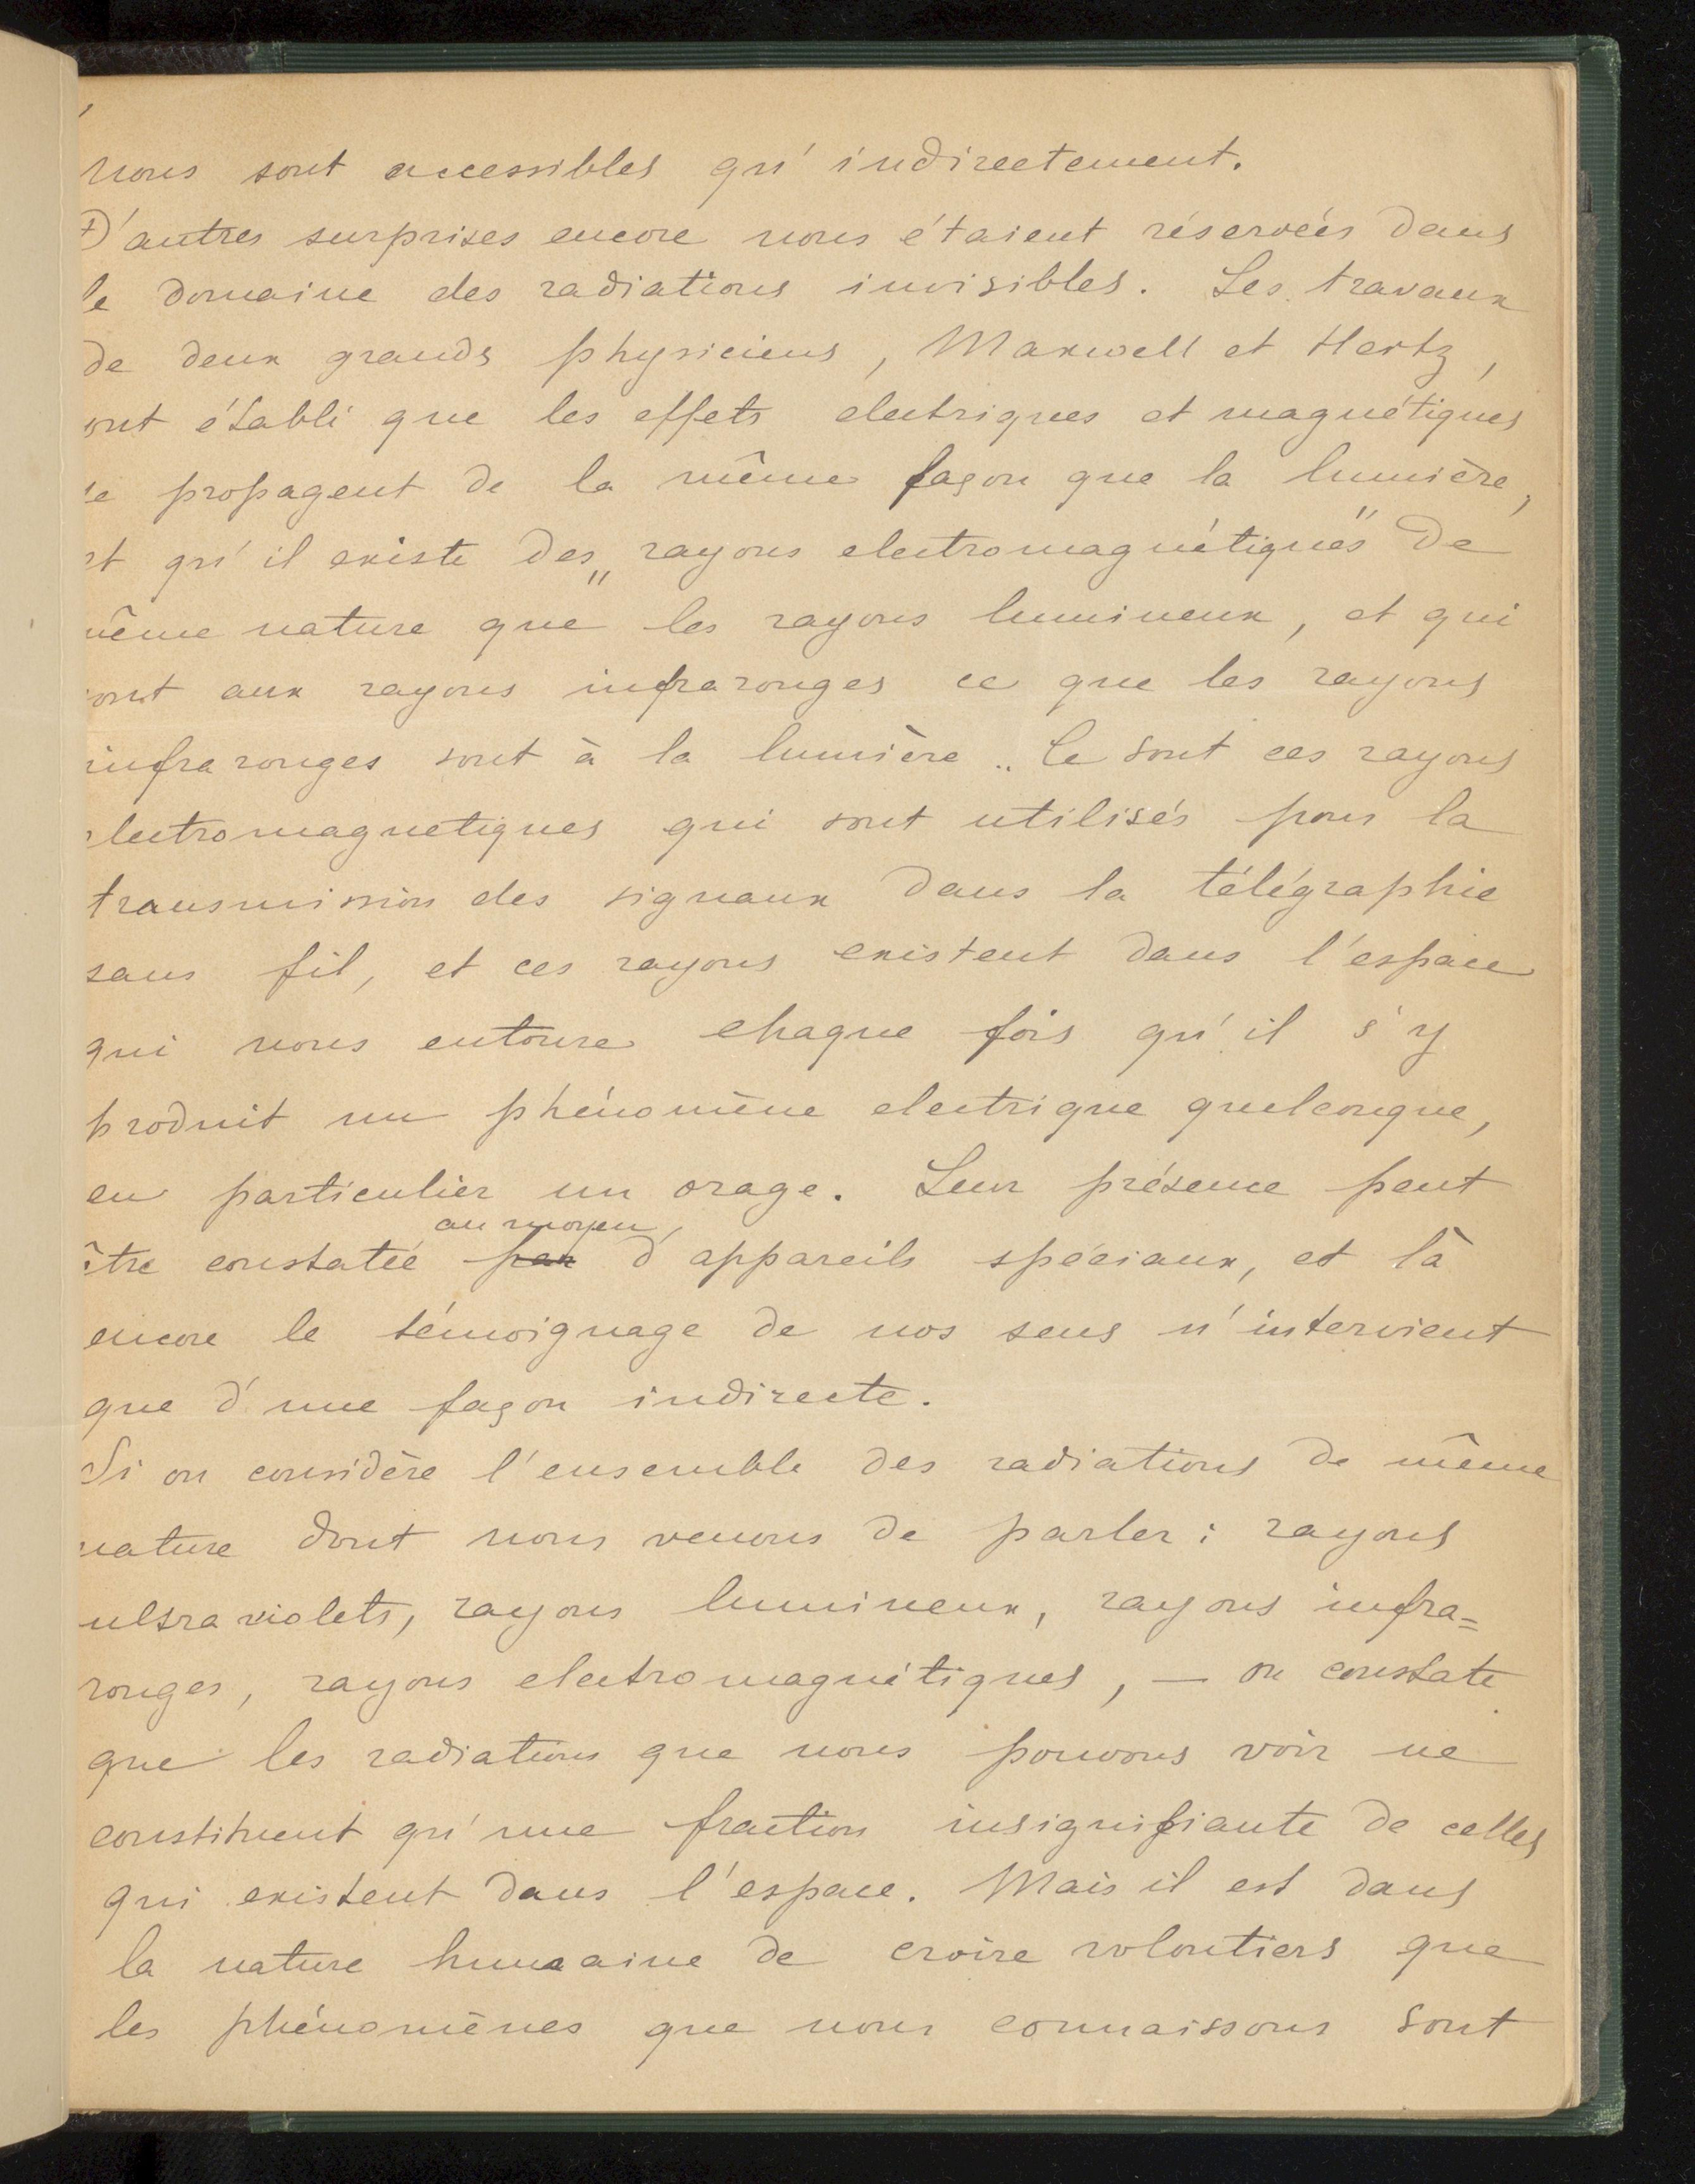 nous sont accessibles qu'indirectement.
D'autres surprises encore nous étaient réservées dans
le domaine des radiations invisibles. Les travaux
de deux grands physiciens, Maxwell et Hertz,
ont établi que les effets electriques et magnétiques
se propagent de la même façon que la lumière,
et qu'il existe des „rayons electromagnétiques" de
même nature que les rayons lumineux, et qui
sont aux rayons infrarouges ce que les rayons
infrarouges sont à la lumière.. Ce sont ces rayons
electromagnetiques qui sont utilisés pour la
transmission des signaux dans la télégraphie
sans fil, et ces rayons existent dans l'espace
qui nous entoure chaque fois qu'il s'y
produit un phénomène electrique quelconque,
en particulier un orage. Leur présence peut
au moyen
être constatée par d'appareils spéciaux, et là
encore le témoignage de nos sens n'intervient
que d'une façon indirecte.
Si on considère l'ensemble des radiations de même
nature dont nous venons de parler : rayons
ultraviolets, rayons lumineux, rayons infra=
rouges, rayons electromagnétiques, — on constate
que les radiations que nous pouvons voir ne
constituent qu'une fraction insignifiante de celles
qui existent dans l'espace. Mais il est dans
la nature humaine de croire volontiers que
les phénomènes que nous connaissons sont